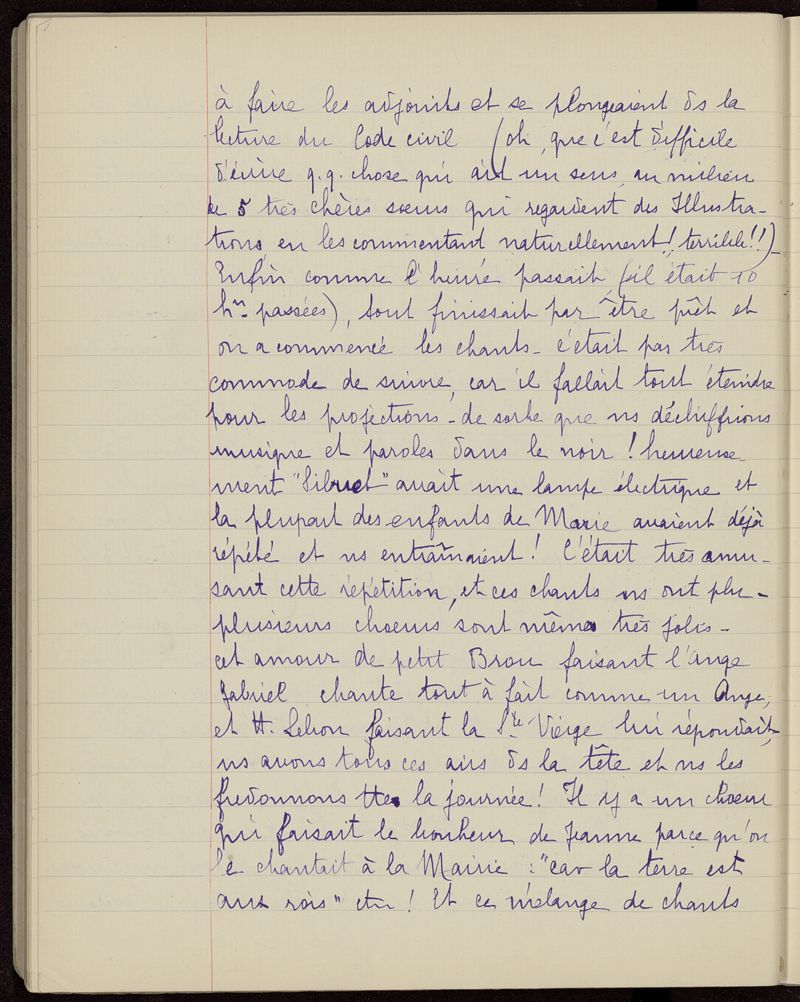 à faire les adjoints et se plongeaient ds la
lecture du Code civil (oh, que c'est difficile
d'écrire q.q. chose qui ait un sens au milieu
de 5 très chères sœurs qui regardent des Illustra-
tions en les commentant naturellement!, terrible!!)-
Enfin comme l'heure passait, (il était 10
hres passées), tout finissait par être prêt et
on a commencé les chants - c'était pas très
commode de suivre, car il fallait tout éteindre
pour les projections - de sorte que ns déchiffrions
musique et paroles dans le noir! heureuse-
ment "Sibuet" avait une lampe électrique et
la plupart des enfants de Marie avaient déjà
répété et ns entraînaient! C'était très amu-
sant cette répétition, et ces chants ns ont plu -
plusieurs chœurs sont même très jolis -
cet amour de petit Brou faisant l'ange
Gabriel chante tout à fait comme un Ange,
et H. Lebon faisant la Ste Vierge lui répondait,
ns avons tous ces airs ds la tête et ns les
fredonnons tte la journée! Il y a un chœur
qui faisait le bonheur de Jeanne parce qu'on
le chantait à la Mairie : "car la terre est
aux rois" etc! Et ce mélange de chants